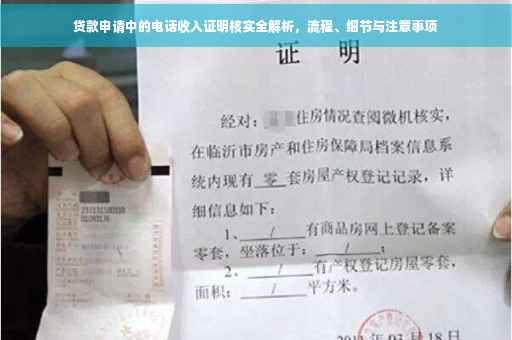 贷款申请中的电话收入证明核实全解析，流程、细节与注意事项
证 明
经对： 住房情况查阅微机核实，
在临沂市房产和住房保障局档案信息系
统内现有 零 套房屋产权登记记录，详
细信息如下：
1、 / 有商品房网上登记备案
零套，坐落位于： / ；
2、 / 有产权登记房屋零套，
面积： / 平方米。
03 月 18 日